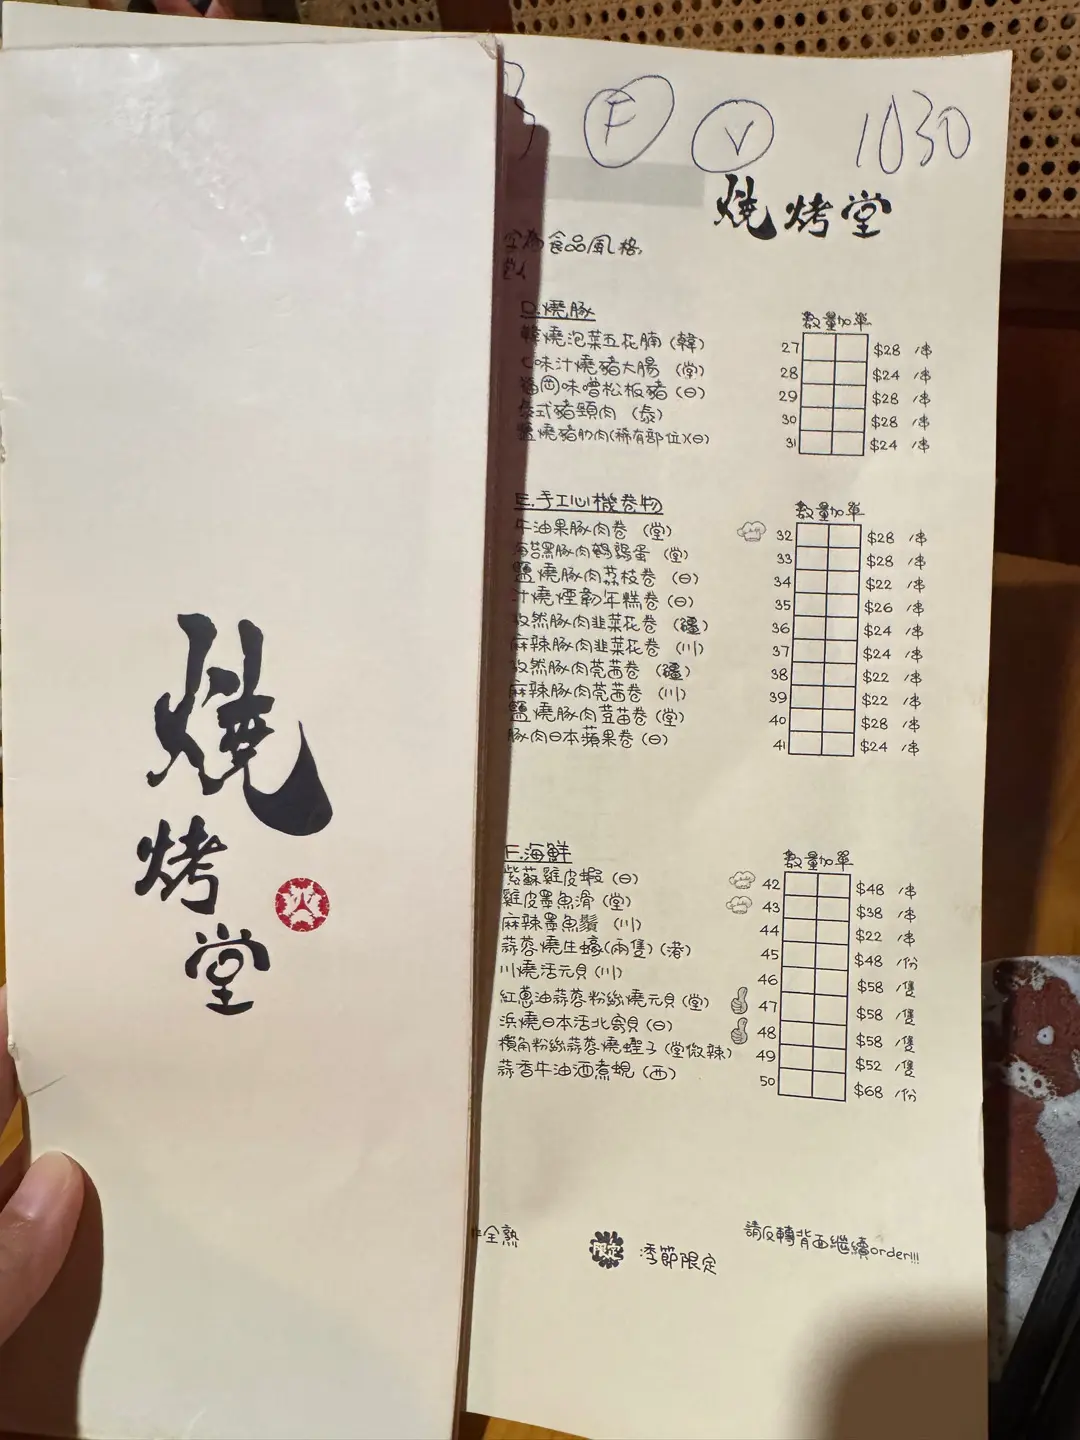 燒
烤
堂
火
F V 1030
燒烤堂
食品風格
D.燒豚 數量加單
韓燒泡菜五花腩 (韓) 27 $28 /串
味汁燒豬大腸 (堂) 28 $24 /串
福岡味噌松板豬 (日) 29 $28 /串
泰式豬頸肉 (泰) 30 $28 /串
鹽燒豬肋肉(稀有部位)(日) 31 $24 /串
E.手工心機卷物 數量加單
牛油果豚肉卷 (堂) 32 $28 /串
海苔黑豚肉鵪鶉蛋 (堂) 33 $28 /串
鹽燒豚肉荔枝卷 (日) 34 $22 /串
汁燒煙韌年糕卷 (日) 35 $26 /串
孜然豚肉韭菜花卷 (疆) 36 $24 /串
麻辣豚肉韭菜花卷 (川) 37 $24 /串
孜然豚肉芫茜卷 (疆) 38 $22 /串
麻辣豚肉芫茜卷 (川) 39 $22 /串
鹽燒豚肉荳苗卷 (堂) 40 $28 /串
豚肉日本蘋果卷 (日) 41 $24 /串
F.海鮮 數量加單
紫蘇雞皮蝦 (日) 42 $48 /串
雞皮墨魚滑 (堂) 43 $38 /串
麻辣墨魚鬚 (川) 44 $22 /串
蒜蓉燒生蠔(兩隻) (港) 45 $48 /份
川燒活元貝 (川) 46 $58 /隻
紅蔥油蒜蓉粉絲燒元貝 (堂) 47 $58 /隻
浜燒日本活北寄貝 (日) 48 $58 /隻
欖角粉絲蒜蓉燒蟶子 (堂微辣) 49 $52 /隻
蒜香牛油酒煮蜆 (西) 50 $68 /份
全熟
限定 季節限定
請反轉背面繼續order!!!